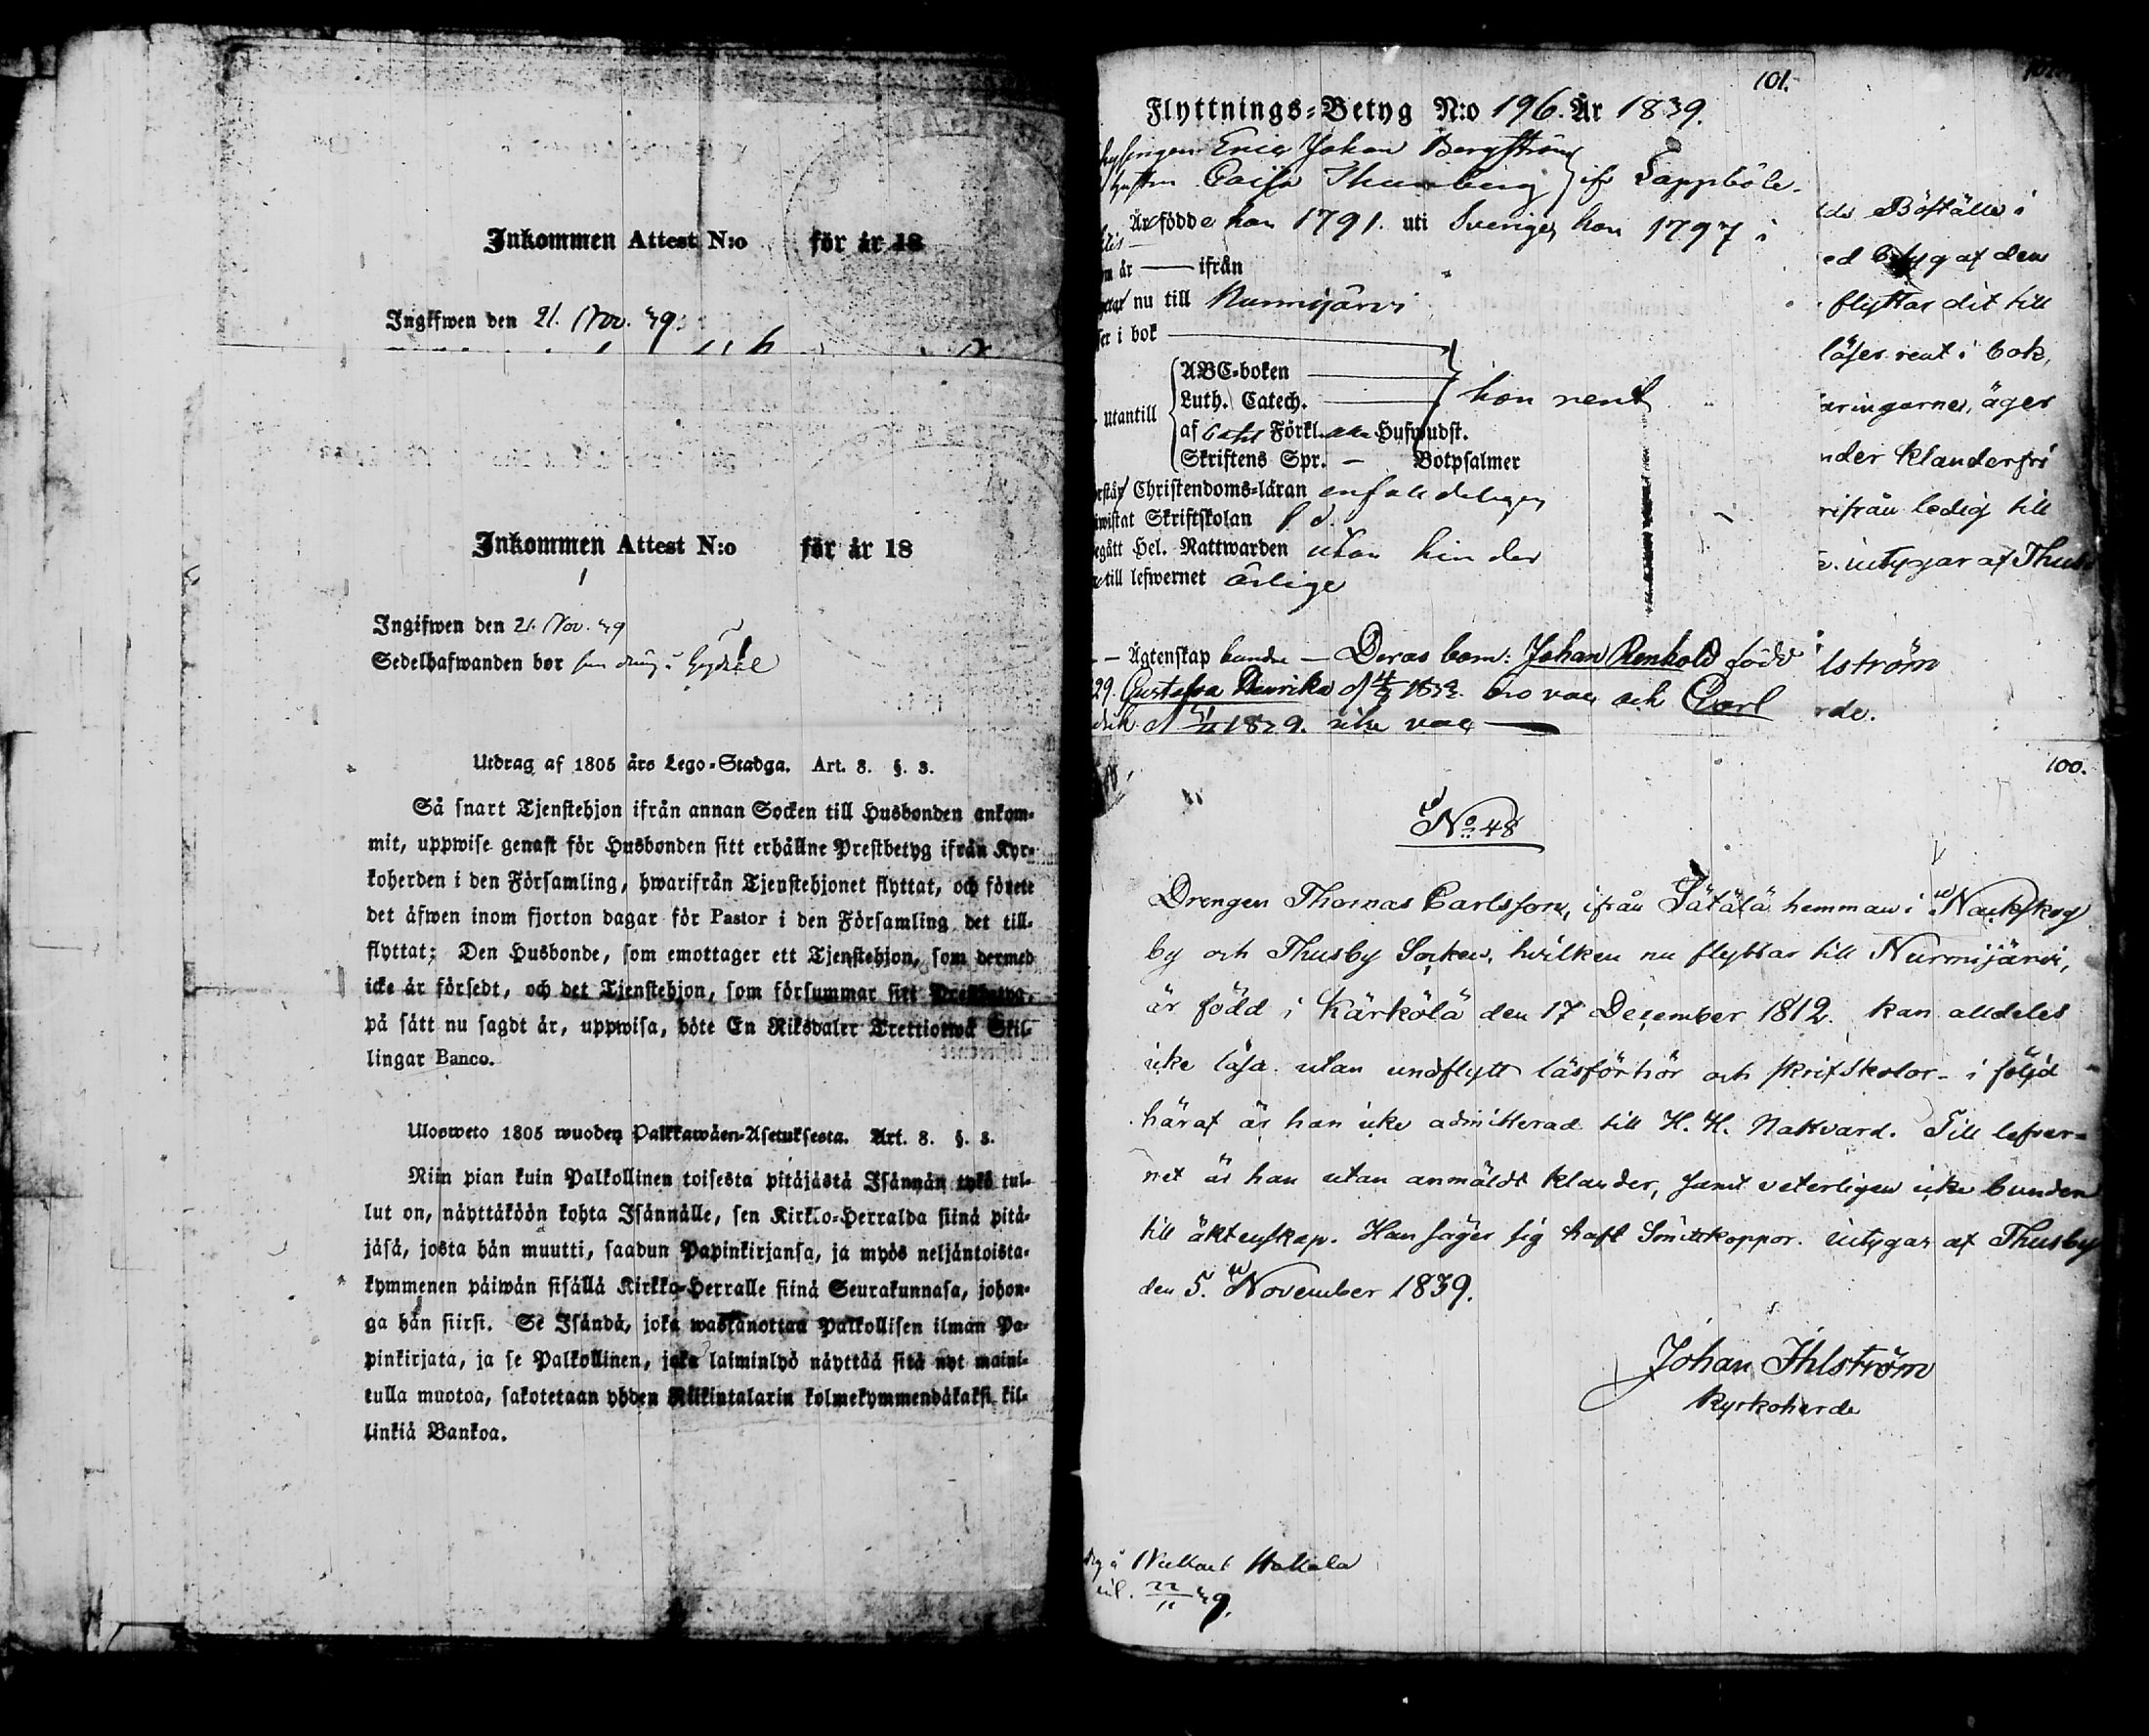 Inkommen Attest N:o för år 18
Ingifwen den 21. Nov. 39.
Inkommen Attest N:o för år 18
Ingifwen den 21. Nov. 39
Sedelhafwanden bor
Utdrag af 1805 års Lego-Stadga. Art. 8. §. 3.
Så snart Tjenstehjon ifrån annan Socken till Husbonden ankom-
mit, uppwise genast för Husbonden sitt erhållne Prestbetyg ifrån Kyr-
koherden i den Församling, hwarifrån Tjenstehjonet flyttat, och förete
det äfwen inom fjorton dagar för Pastor i den Församling det till-
flyttat; Den Husbonde, som emottager ett Tjenstehjon, som dermed
icke är försedt, och det Tjenstehjon, som försummar sitt Prestbetyg,
på sätt nu sagdt är, uppwisa, böte En Riksdaler Trettiotwå Skil-
lingar Banco.
Ulosweto 1805 wuoden Palkkawäen-Asetuksesta. Art. 8. §. 3.
Niin pian kuin Palkollinen toisesta pitäjästä Isännän tykö tul-
lut on, näyttäköön kohta Isännälle, sen Kirkko-Herralda siinä pitä-
jäsä, josta hän muutti, saadun Papinkirjansa, ja myös neljäntoista-
kymmenen päiwän sisällä Kirkko-Herralle siinä Seurakunnasa, johon-
ga hän siirsi. Se Isändä, joka wastanottaa Palkollisen ilman Pa-
pinkirjata, ja se Palkollinen, joka laiminlyö näyttää sitä nyt maini-
tulla muotoa, sakotetaan yhden Riikintalarin kolmekymmendäkaksi kil-
linkiä Bankoa.
101.
Flyttnings-Betyg N:o 196. År 1839.
Eric Johan Bergström
Caisa Thunberg ifr Lappböle.
Äro födde han 1791. uti Sverige, hon 1797 i
år — ifrån
nu till Nurmijärvi
i bok
ABC-boken
Luth. Catech. hon rent
utantill
af Förkl. Hufwudst.
Skriftens Spr. — Botpsalmer
Christendoms-läran enfaldeligen
Skriftskolan
Hel. Nattwarden utan hinder
till lefwernet ärlige
Ägtenskap bundne — Deras barn: Johan Renhold född
29. Gustafva Henrika d 4/3 1832. bro vac och Carl
1839. icke vac
lds Böställe i
ed betyg af den
flyttar dit till
läser rent i bok,
äringarne, äger
nder klanderfri
rifrån ledig till
intygar af Thusby
lström
rde.
100.
No 48
Drengen Thomas Carlsson, ifrån Sätälä hemman i Nackskog
by och Thusby Socken, hvilken nu flyttar till Nurmijärvi,
är född i Kärkölä den 17 December 1812. kan alldeles
icke läsa utan undflytt läsförhör och skriftskolor - i följd
häraf är han icke admitterad till H. H. Nattvard. Till lefver-
net är han utan anmäldt klander, samt veterligen icke bunden
till äktenskap. Han säger sig haft Smittkoppor. intygar af Thusby
den 5. November 1839.
Johan Ihlström
Kyrkoherde
22/11 39.